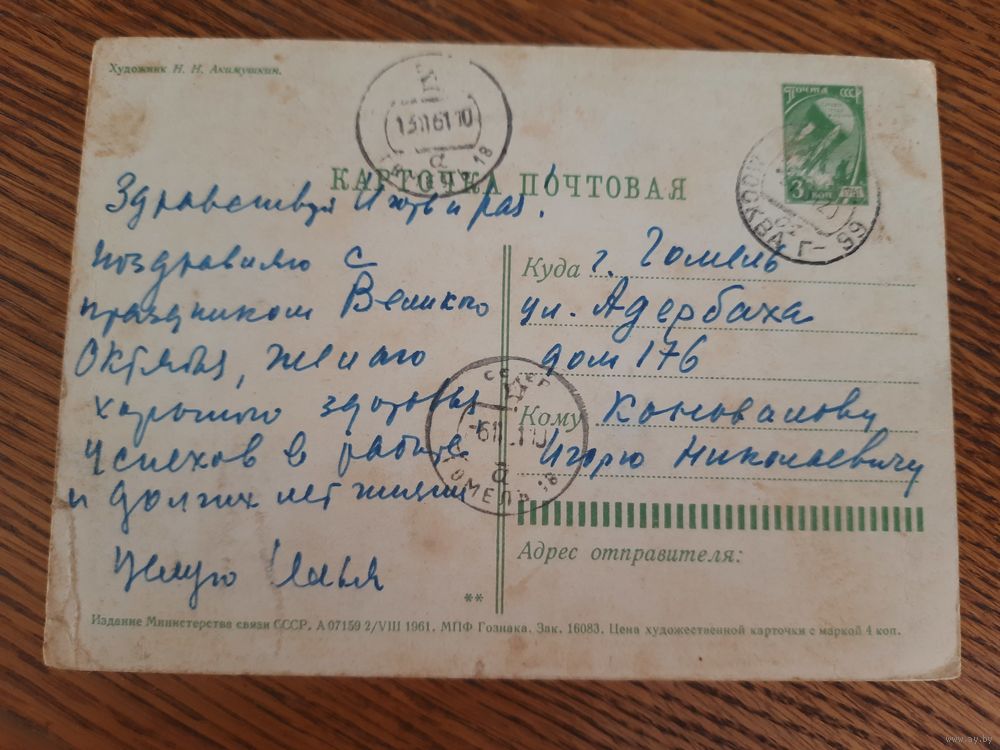 Художник Н. Н. Акимушкин.
ПОЧТА СССР
3
131161 10
ГОМЕЛЬ 18
МОСКВА Г-59
КАРТОЧКА ПОЧТОВАЯ
Здравствуй
Поздравляю с
праздником Великого
Октября, желаю
хорошего здоровья
успехов в работе
и долгих лет жизни
Целую
Куда г. Гомель
ул. Адербаха
дом 176
Кому Коновалову
Игорю Николаевичу
ГОМЕЛЬ 18
Адрес отправителя:
**
Издание Министерства связи СССР. А 07159 2/VIII 1961. МПФ Гознака. Зак. 16083. Цена художественной карточки с маркой 4 коп.
www.ay.by